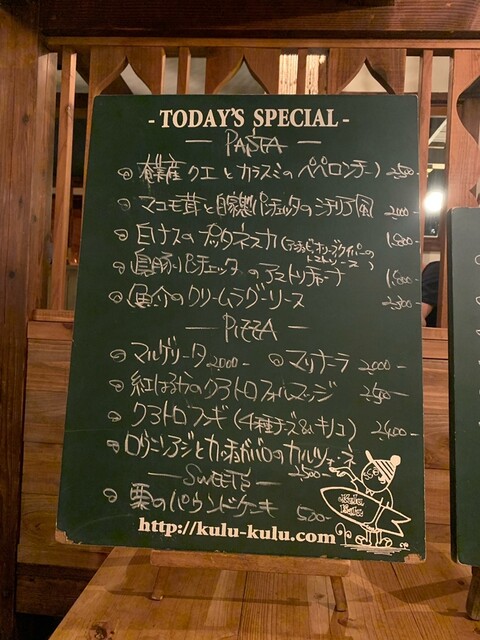 - TODAY'S SPECIAL -
— PASTA —
クエとカラスミのペペロンチーノ 2500-
マコモ茸と自家製パンチェッタのシチリア風 2000-
白ナスのプッタネスカ(アンチョビ、オリーブ、ケイパーのトマトソース) 1800-
パンチェッタのアマトリチャーナ 1800-
魚介のクリームラグーソース 2300-
— PIZZA —
マルゲリータ 2000- マリナーラ 2000-
紅はるかのクアトロフォルマッジ 2500-
クアトロフンギ(4種チーズ&キノコ) 2400-
のカルツォーネ
2500-
— SWEETS —
栗のパウンドケーキ 500-
Kulu Kulu
http://kulu-kulu.com